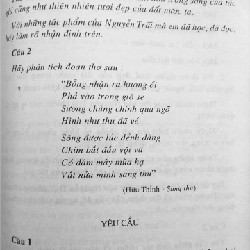 giả cũng như thiên nhiên tươi đẹp của đất nước ta.
Với những tác phẩm của Nguyễn Trãi mà em đã học, đã đọc,
hãy làm rõ nhận định trên.
Câu 2
Hãy phân tích đoạn thơ sau
"Bỗng nhận ra hương ổi
Phả vào trong gió se
Sương chùng chình qua ngõ
Hình như thu đã về
Sông được lúc dềnh dàng
Chim bắt đầu vội vã
Có đám mây mùa hạ
Vắt nửa mình sang thu"
(Hữu Thỉnh - Sang thu)
YÊU CẦU
Câu 1